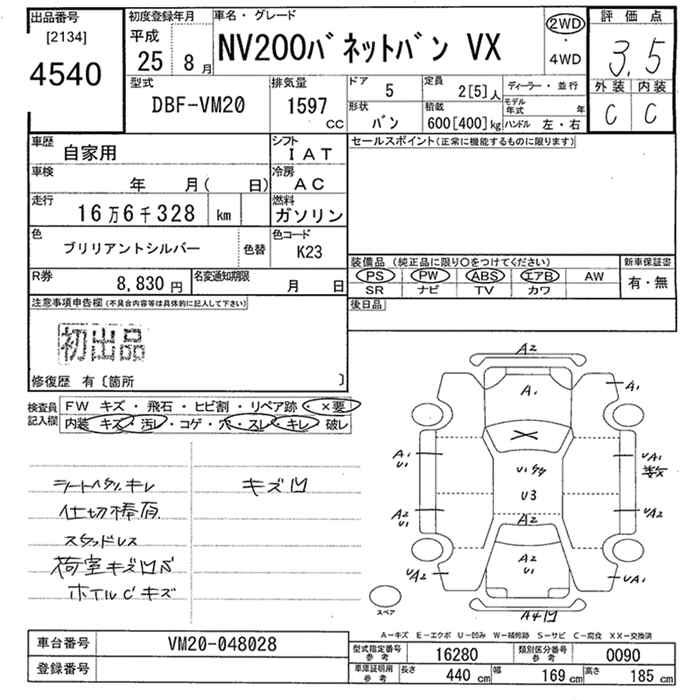 出品番号
[2134]
4540
初度登録年月
平成
25 8月
車名・グレード
NV200バネットバン VX
2WD
・
4WD
評価点
3.5
外装 内装
C C
型式
DBF-VM20
排気量
1597
CC
ドア
5
形状
バン
定員
2[5]人
積載
600[400]kg
ディーラー・並行
モデル年式 年
ハンドル 左・右
車歴
自家用
シフト
IAT
車検
年 月( 日)
冷房
AC
走行
16万6千328 km
燃料
ガソリン
色
ブリリアントシルバー
色替
色コード
K23
R券
8,830円
名変通知期限
月 日
セールスポイント(正常に機能するものに限ります)
装備品(純正品に限り○をつけてください)
PS PW ABS エアB AW
SR ナビ TV カワ
新車保証書
有・無
後日品
注意事項申告欄(不具合内容等は具体的に記入して下さい)
初出品
修復歴 有〔箇所 〕
検査員
記入欄
FW キズ・飛石・ヒビ割・リペア跡・×要
内装 キズ・汚レ・コゲ・穴・スレ・キレ 破レ
キズ凹
仕切棒有
スタッドレス
荷室キズ凹
ホイルCキズ
A2
A1
A1
A1
U1
UA1
U3
A2
U1
UA2
A2
A2
U1
UA2
UA1
A4凹
スペア
A―キズ E―エクボ U―凹み W―補修跡 S―サビ C―腐食 XX―交換済
車台番号
VM20-048028
登録番号
型式指定番号
参考
16280
類別区分番号
参考
0090
車庫証明用
参考
長さ 440cm 幅 169cm 高さ 185cm